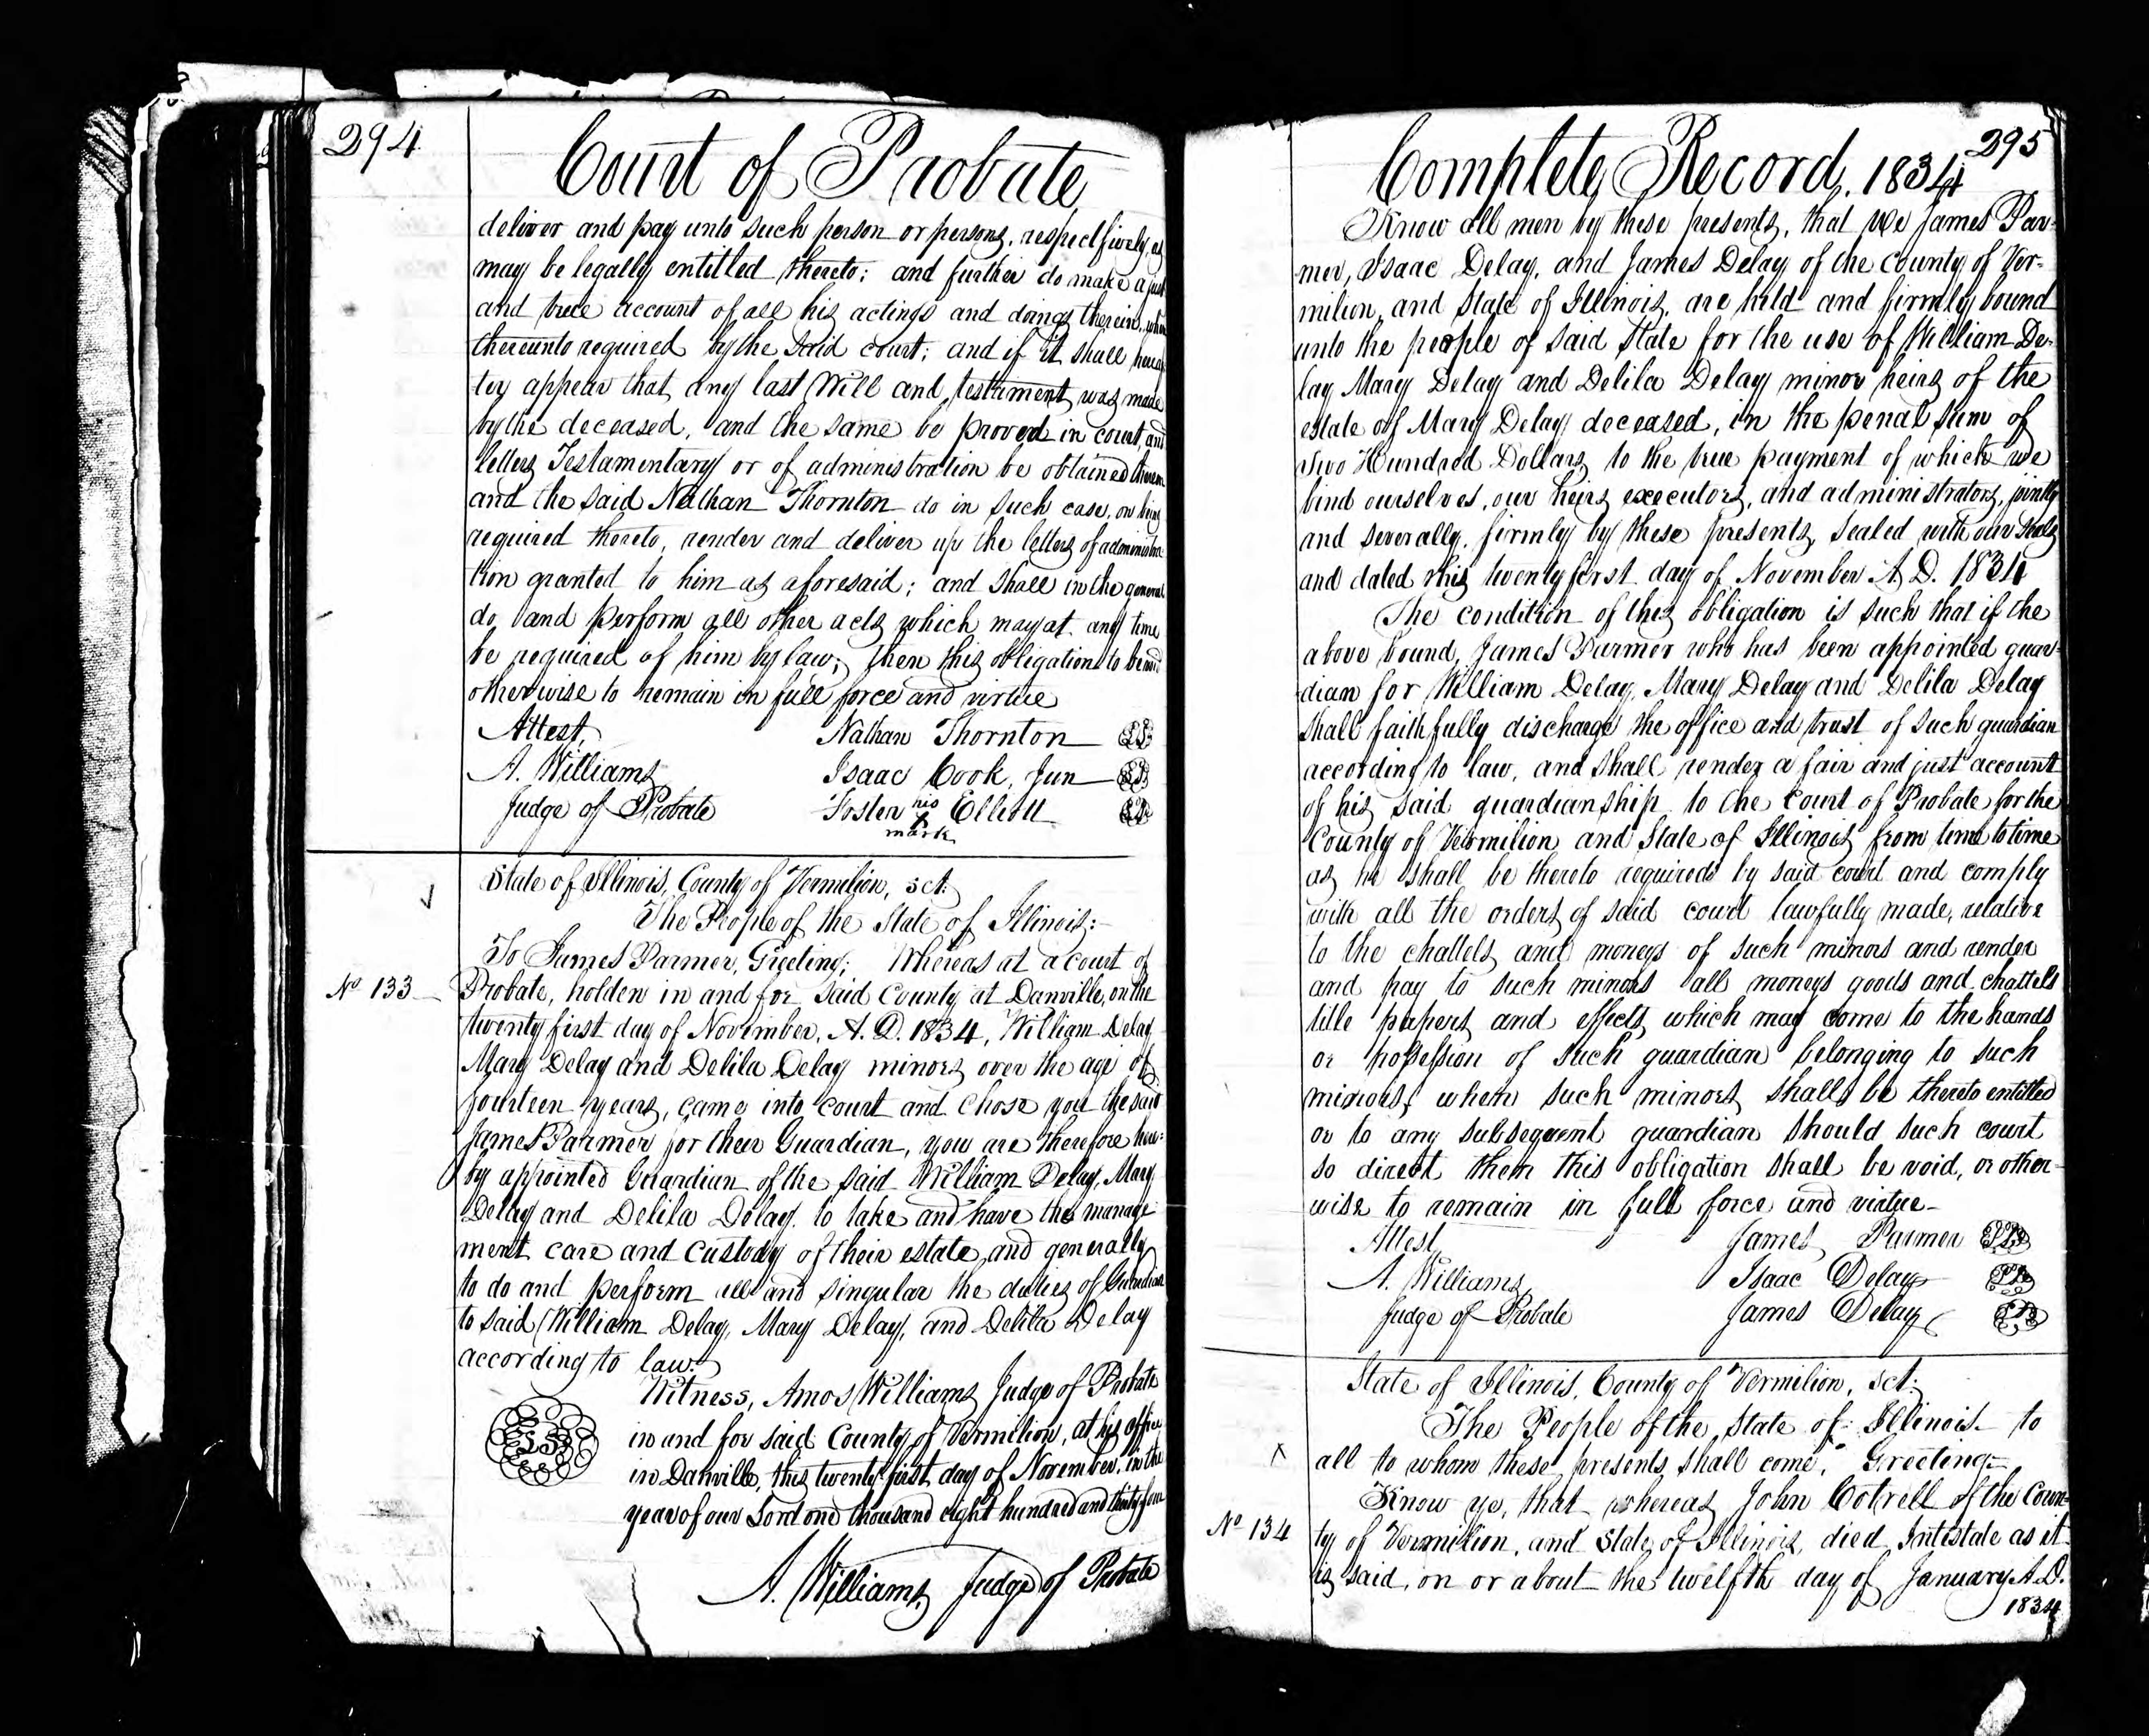 294
Court of Probate
deliver and pay unto such person or persons, respectfively, as
may be legally entitled thereto; and further do make a just
and true account of all his actings and doings therein, when
thereunto required by the said court; and if it shall hereaf
ter appear that any last Will and testament was made
by the deceased, and the same be proved in court, and
letters Testamentary or of administration be obtained thereon
and the said Nathan Thornton do in such case, on being
required thereto, render and deliver up the letters of administra
tion granted to him as aforesaid; and shall in the general
do and perform all other acts which may at any time
be required of him by law; then this obligation to be void
otherwise to remain in full force and virtue
Attest, Nathan Thornton LS
A. Williams Isaac Cook, Jun LS
Judge of Probate Foster his X mark Elliott LS
State of Illinois, County of Vermilion, sct.
The People of the State of Illinois:-
To James Parmer, Greeting; Whereas at a court of
No 133 Probate, holden in and for said County at Danville, on the
twenty first day of November, A. D. 1834, William Delay
Mary Delay and Delila Delay minors over the age of
fourteen years, came into court and chose you the said
James Parmer for their Guardian, you are therefore here-
by appointed Guardian of the said William Delay, Mary
Delay and Delila Delay to take and have the manage
ment care and custody of their estate, and generally
to do and perform all and singular the duties of Guardian
to said William Delay, Mary Delay, and Delila Delay
according to law.
Witness, Amos Williams Judge of Probate
LS in and for said County of Vermilion, at his office
in Danville, this twenty first day of November, in the
year of our Lord one thousand eight hundred and thirty four
A. Williams, Judge of Probate
295
Complete Record. 1834
Know all men by these presents, that We James Par-
mer, Isaac Delay, and James Delay of the county of Ver-
milion, and State of Illinois, are held and firmly bound
unto the people of said State for the use of William De-
lay Mary Delay and Delila Delay minor heirs of the
estate of Mary Delay deceased, in the penal sum of
Two Hundred Dollars to the true payment of which we
bind ourselves, our heirs executors, and administrators, jointly
and severally, firmly by these presents, sealed with our seals
and dated this twenty first day of November A. D. 1834
The condition of this obligation is such that if the
above bound, James Parmer who has been appointed guar-
dian for William Delay, Mary Delay and Delila Delay
shall faithfully discharge the office and trust of such guardian
according to law, and shall render a fair and just account
of his said guardianship to the court of Probate for the
County of Vermilion and State of Illinois from time to time
as he shall be thereto required by said court and comply
with all the orders of said court lawfully made, relative
to the chattels and moneys of such minors and render
and pay to such minors all moneys goods and chattels
title papers and effects which may come to the hands
or possession of such guardian belonging to such
minors, when such minors shall be thereto entitled
or to any subsequent guardian should such court
so direct then this obligation shall be void, or other-
wise to remain in full force and virtue-
Attest James Parmer LS
A. Williams Isaac Delay LS
Judge of Probate James Delay LS
State of Illinois, County of Vermilion, sct.
The People of the State of Illinois to
all to whom these presents shall come, Greeting-
Know ye, that whereas John Cotrell of the Coun-
No 134 ty of Vermilion, and State of Illinois, died Intestate as it
is said, on or about the twelfth day of January A.D.
1834